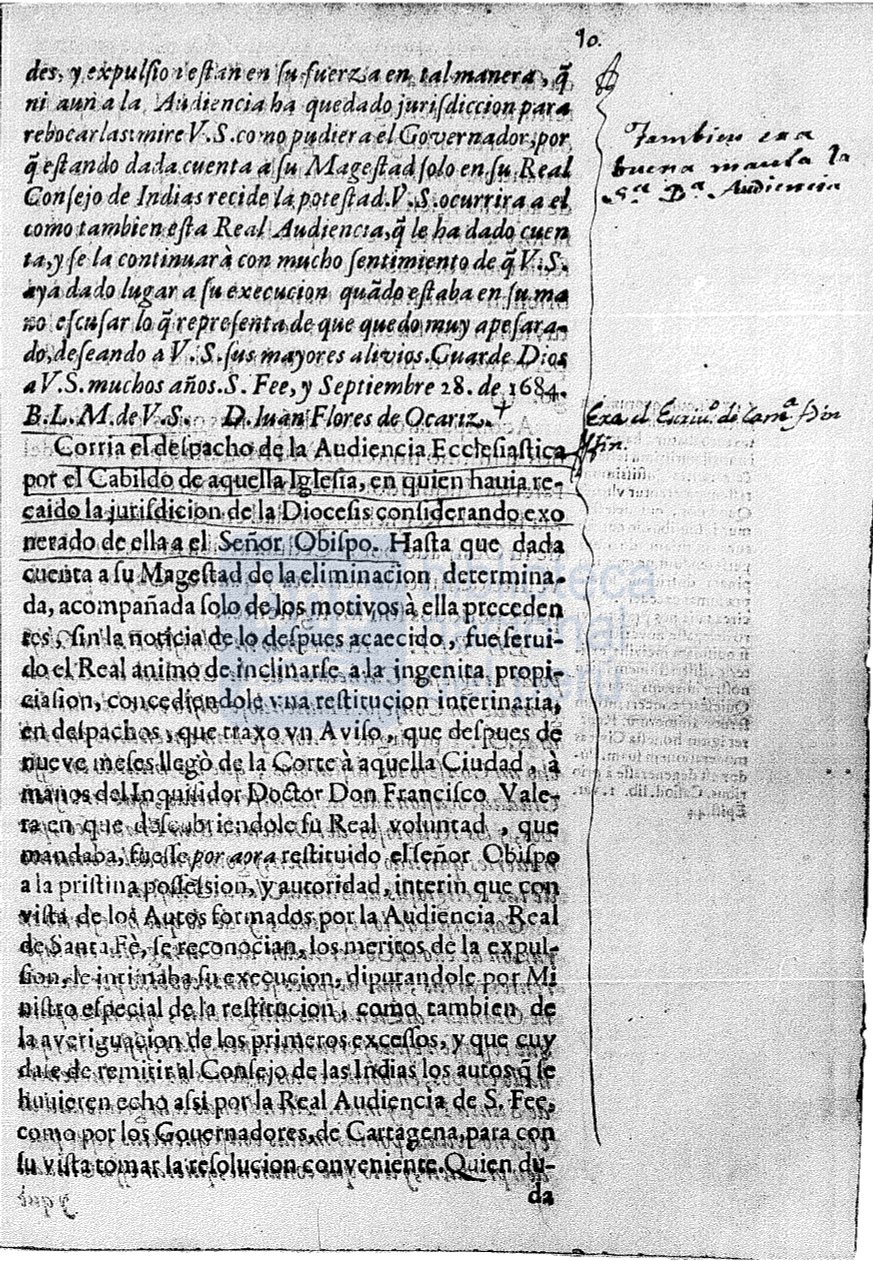 10.
des, y expulsion estan en su fuerza en tal manera, q̃
ni aun a la Audiencia ha quedado jurisdiccion para
rebocarlas mire V.S. como pudiera el Governador, por
q̃ estando dada cuenta a su Magestad solo en su Real
Consejo de Indias recide la potestad. V.S. ocurrira a el
como tambien esta Real Audiencia, q̃ le ha dado cuen
ta, y se la continuarà con mucho sentimiento de q̃ V.S.
aya dado lugar a su execucion quãdo estaba en su ma
no escusar lo q̃ representa de que quedo muy apesara-
do, deseando a V.S. sus mayores alivios. Guarde Dios
a V.S. muchos años. S. Fee, y Septiembre 28. de 1684.
B.L.M. de V.S. D. Iuan Flores de Ocariz.
Corria el despacho de la Audiencia Ecclesiastica
por el Cabildo de aquella Iglesia, en quien hauia re-
caido la jurisdicion de la Diocesis considerando exo
nerado de ella a el Señor Obispo. Hasta que dada
cuenta a su Magestad de la eliminacion determina-
da, acompañada solo de los motivos à ella preceden
tes, sin la noticia de lo despues acaecido, fue serui-
do el Real animo de inclinarse a la ingenita propi-
ciasion, concediendole vna restitucion interinaria,
en despachos, que traxo vn Aviso, que despues de
nueve meses llegò de la Corte à aquella Ciudad, à
manos del Inquisidor Doctor Don Francisco Vale-
ra en que descubriendole su Real voluntad, que
mandaba, fuesse por aora restituido el señor Obispo
a la pristina possession, y autoridad, interin que con
vista de los Autos formados por la Audiencia Real
de Santa Fè, se reconocian, los meritos de la expul-
sion, le intimaba su execucion, diputandole por Mi
nistro especial de la restitucion, como tambien de
la averiguacion de los primeros excessos, y que cuy
dase de remitir al Consejo de las Indias los autos q̃ se
huuieren echo assi por la Real Audiencia de S. Fee,
como por los Gouernadores, de Cartagena, para con
su vista tomar la resolucion conveniente. Quien du-
da
Tambien era
buena la
Audiencia
Era el de
biblioteca
nacional
del perú